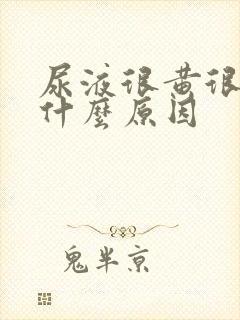 尿液很黄很
什麼原因
鬼半京